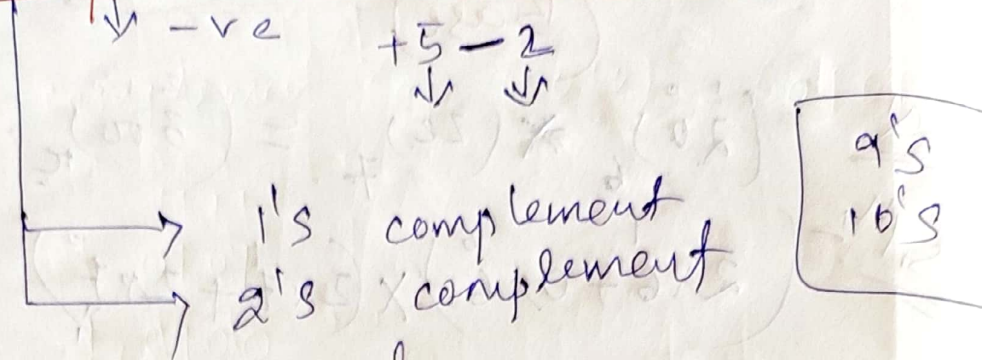 -ve
+5-2
1's complement
2's complement
9's
10's